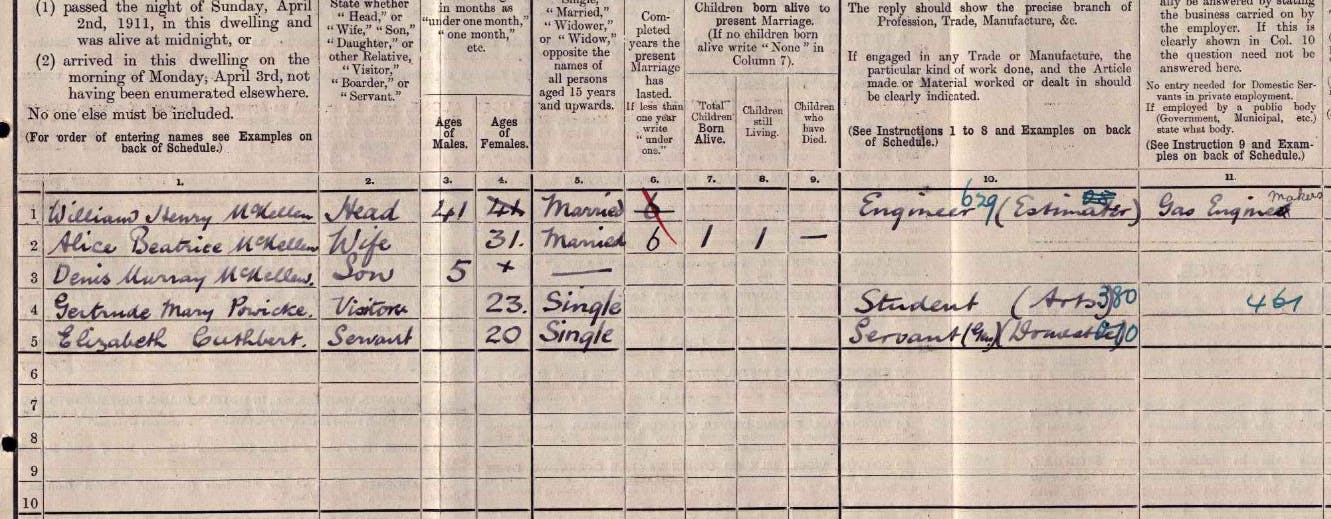 (1) passed the night of Sunday, April
2nd, 1911, in this dwelling and
was alive at midnight, or
(2) arrived in this dwelling on the
morning of Monday, April 3rd, not
having been enumerated elsewhere.
No one else must be included.
(For order of entering names see Examples on
back of Schedule.)
State whether
"Head," or
"Wife," "Son,"
"Daughter," or
other Relative,
"Visitor,"
"Boarder," or
"Servant."
in months as
"under one month,"
"one month,"
etc.
Ages
of
Males.
Ages
of
Females.
"Single,"
"Married,"
"Widower,"
or "Widow,"
opposite the
names of
all persons
aged 15 years
and upwards.
Com-
pleted
years the
present
Marriage
has
lasted.
If less than
one year
write
"under
one."
Children born alive to
present Marriage.
(If no children born
alive write "None" in
Column 7).
Total
Children
Born
Alive.
Children
still
Living.
Children
who
have
Died.
The reply should show the precise branch of
Profession, Trade, Manufacture, &c.
If engaged in any Trade or Manufacture, the
particular kind of work done, and the Article
made or Material worked or dealt in should
be clearly indicated.
(See Instructions 1 to 8 and Examples on back
of Schedule.)
ally be answered by stating
the business carried on by
the employer. If this is
clearly shown in Col. 10
the question need not be
answered here.
No entry needed for Domestic Ser-
vants in private employment.
If employed by a public body
(Government, Municipal, etc.)
state what body.
(See Instruction 9 and Exam-
ples on back of Schedule.)
1. 2. 3. 4. 5. 6. 7. 8. 9. 10. 11.
1 William Henry McKellen Head 41 41 Married 6 Engineer 629 (Estimator) Gas Engine makers
2 Alice Beatrice McKellen Wife 31. Married 6 1 1 —
3 Denis Murray McKellen. Son 5 + —
4 Gertrude Mary Powicke. Visitor 23. Single Student (Arts) 380 461
5 Elizabeth Cuthbert. Servant 20 Single Servant (Gen) (Domestic)
6
7
8
9
10